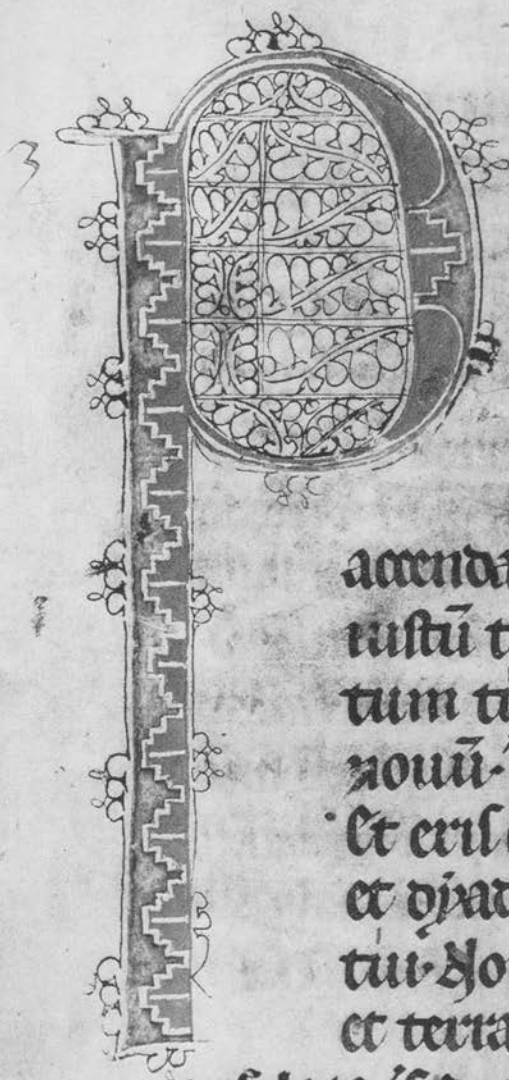 P
accenda
iustū t
tum ti
nouū·
Et eris
et dyad
tui· No
et terra